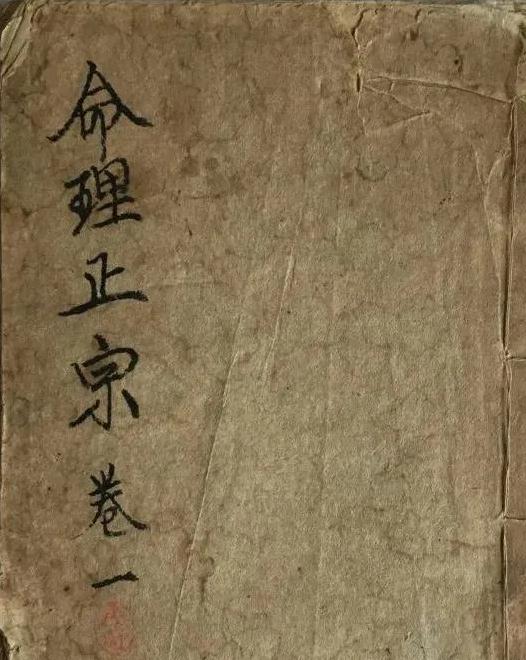 命理正宗卷一